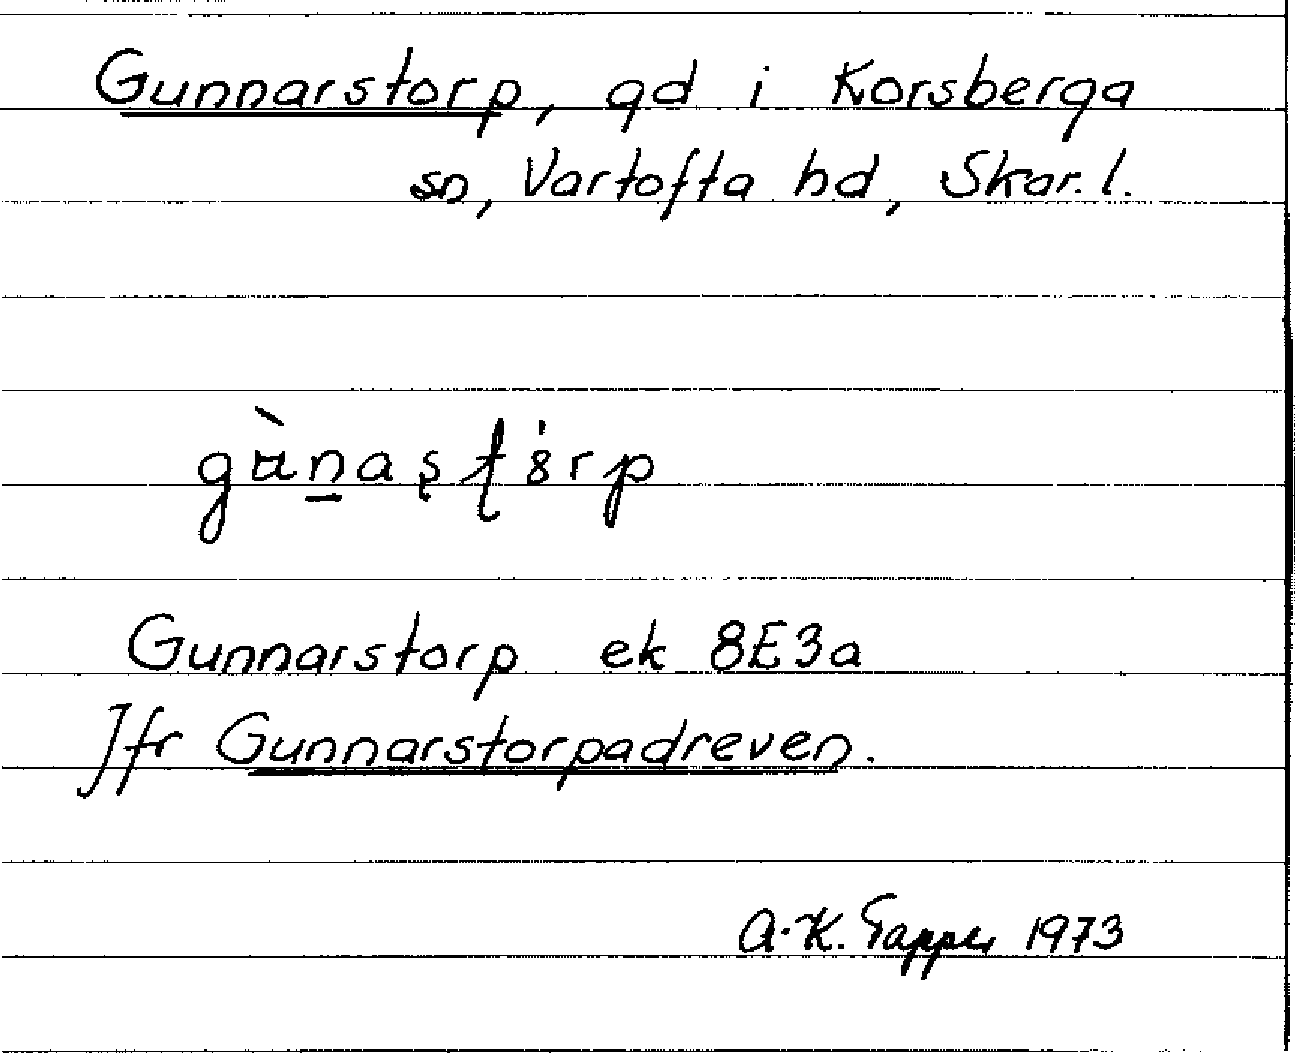 Gunnarstorp, gd i Korsberga
sn, Vartofta hd, Skar. l.
Gunnarstorp ek 8E3a
Jfr Gunnarstorpadreven.
A.K. Tapper 1973